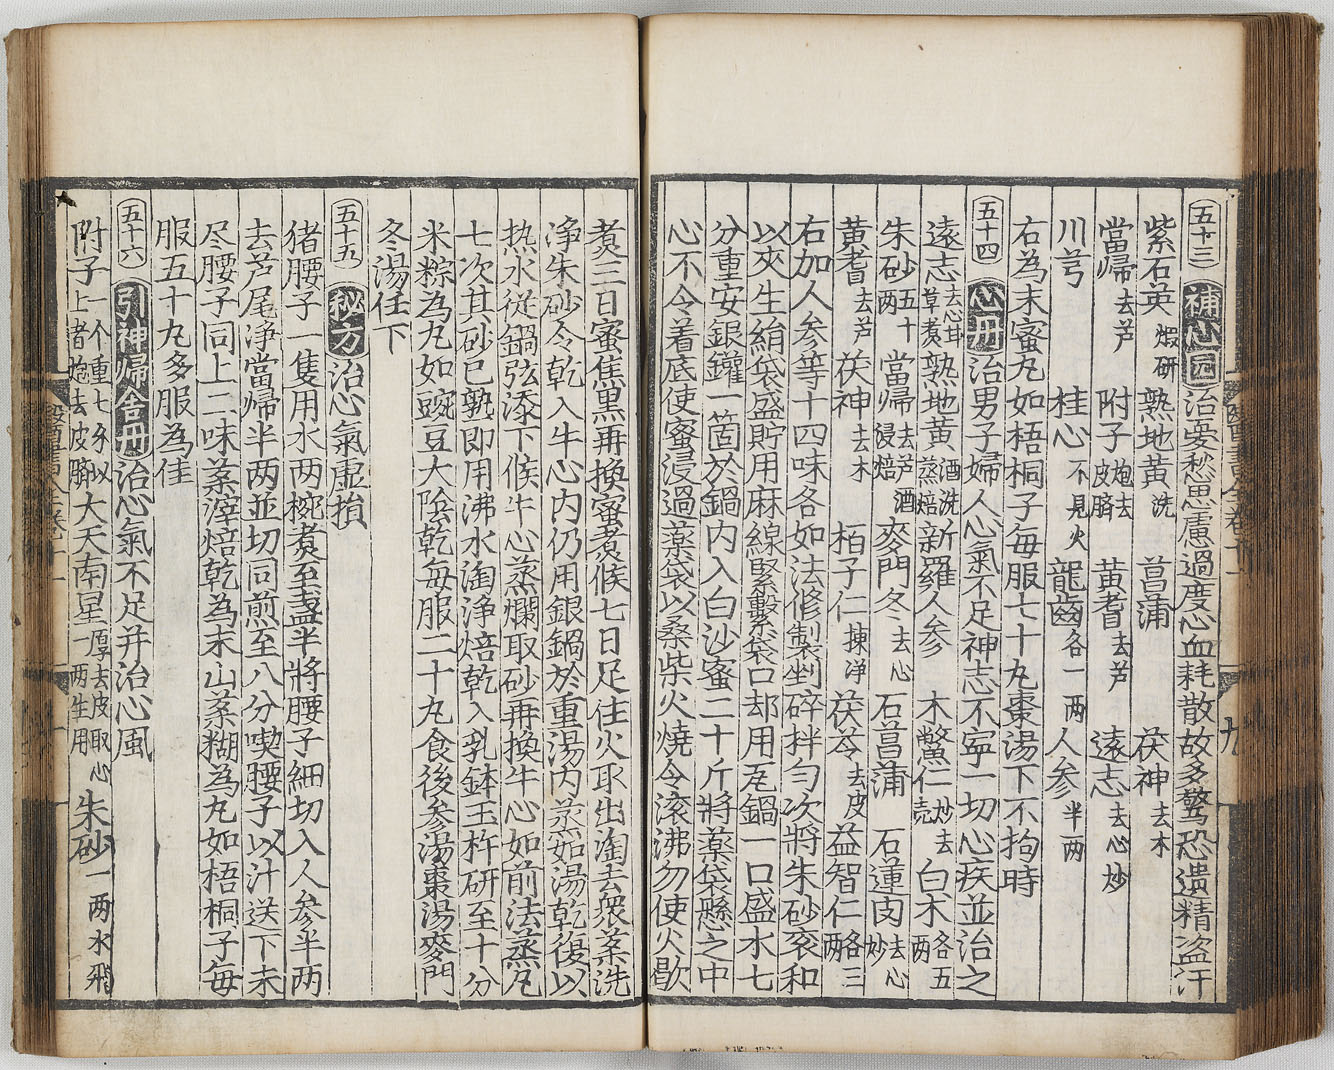 五十三 補心圓 治憂愁思慮過度心血耗散故多驚恐遺精盗汗
紫石英煆研 熟地黄洗 菖蒲 茯神去木
當歸去芦 附子炮去皮臍 黄耆去芦 遠志去心炒
川芎 桂心不見火 龍齒各一两 人参半两
右為末蜜丸如梧桐子每服七十丸棗湯下不拘時
五十四 心丹 治男子婦人心氣不足神志不寧一切心疾並治之
遠志去心甘草煮 熟地黄酒洗蒸焙 新羅人参 木鱉仁炒去壳 白木各五两
朱砂五十两 當歸去芦酒浸焙 麥門冬去心 石菖蒲 石蓮肉去心炒
黄耆去芦 茯神去木 栢子仁揀净 茯苓去皮 益智仁各三两
右加人参等十四味各如法修製剉碎拌勻次將朱砂衮和
以夾生絹袋盛貯用麻線緊繫袋口却用瓦鍋一口盛水七
分重安銀鑵一箇於鍋内入白沙蜜二十斤將薬袋懸之中
心不令着底使蜜浸過薬袋以桑柴火燒令滚沸勿使火歇
煮三日蜜焦黒再換蜜煮候七日足住火取出淘去衆薬洗
净朱砂令乾入牛心内仍用銀鍋於重湯内蒸如湯乾復以
热水従鍋弦添下候牛心蒸爛取砂再換牛心如前法蒸凢
七次其砂已熟即用沸水淘净焙乾入乳鉢玉杵研至十分
米粽為丸如豌豆大陰乾每服二十丸食後参湯棗湯麥門
冬湯任下
五十五 秘方 治心氣虛損
猪腰子一隻用水两椀煮至盞半將腰子細切入人参半两
去芦尾净當歸半两並切同煎至八分喫腰子以汁送下未
尽腰子同上二味薬滓焙乾為末山薬糊為丸如梧桐子每
服五十丸多服為佳
五十六 引神歸舍丹 治心氣不足并治心風
附子一个重七分以上者炮去皮臍 大天南星厚去皮取心一两生用 朱砂一两水飛